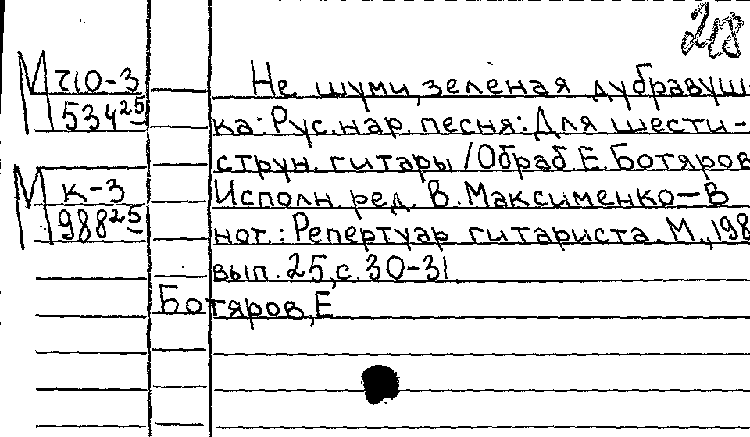 218
М Ч10-3
534 25
М К-3
988 25
Не шуми, зеленая дубравуш
ка: Рус. нар. песня: Для шести-
струн. гитары / Обраб. Е. Ботяров
Исполн. ред. В. Максименко — В
нот.: Репертуар гитариста. М., 198
вып. 25, с. 30-31
Ботяров, Е